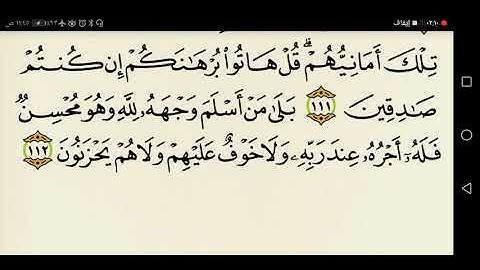 ٠٢:١٠ إيقاف ٩٣٪ ١١:٤٥ ص
تِلْكَ أَمَانِيُّهُمْ ۗ قُلْ هَاتُوا۟ بُرْهَٰنَكُمْ إِن كُنتُمْ
صَٰدِقِينَ ١١١ بَلَىٰ مَنْ أَسْلَمَ وَجْهَهُۥ لِلَّهِ وَهُوَ مُحْسِنٌ
فَلَهُۥٓ أَجْرُهُۥ عِندَ رَبِّهِۦ وَلَا خَوْفٌ عَلَيْهِمْ وَلَا هُمْ يَحْزَنُونَ ١١٢